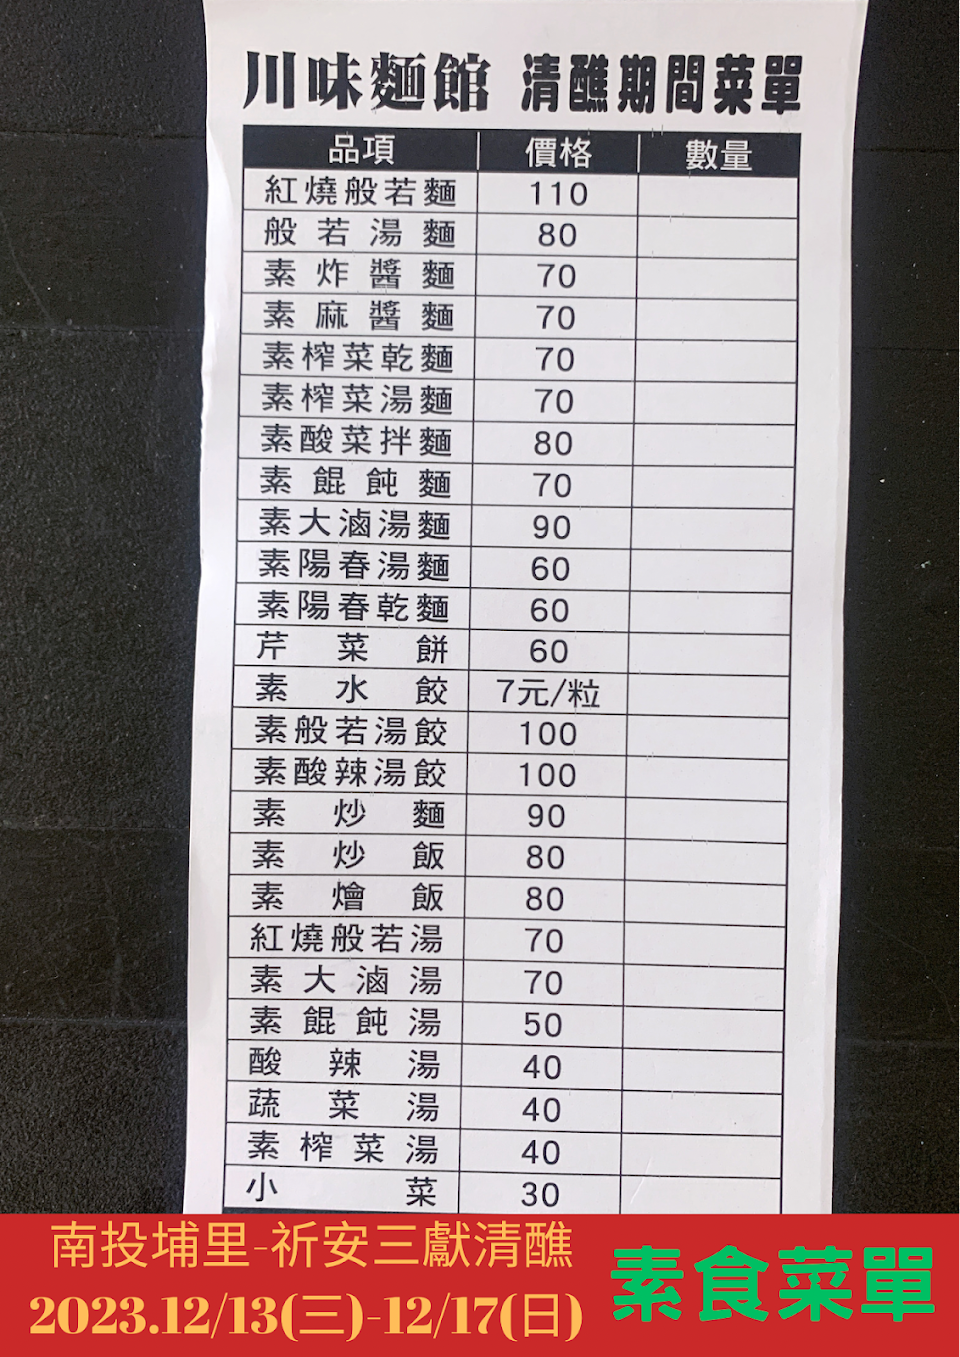 川味麵館 清醮期間菜單
品項 價格 數量
紅燒般若麵 110
般若湯麵 80
素炸醬麵 70
素麻醬麵 70
素榨菜乾麵 70
素榨菜湯麵 70
素酸菜拌麵 80
素餛飩麵 70
素大滷湯麵 90
素陽春湯麵 60
素陽春乾麵 60
芹菜餅 60
素水餃 7元/粒
素般若湯餃 100
素酸辣湯餃 100
素炒麵 90
素炒飯 80
素燴飯 80
紅燒般若湯 70
素大滷湯 70
素餛飩湯 50
酸辣湯 40
蔬菜湯 40
素榨菜湯 40
小菜 30
南投埔里-祈安三獻清醮
2023.12/13(三)-12/17(日)
素食菜單